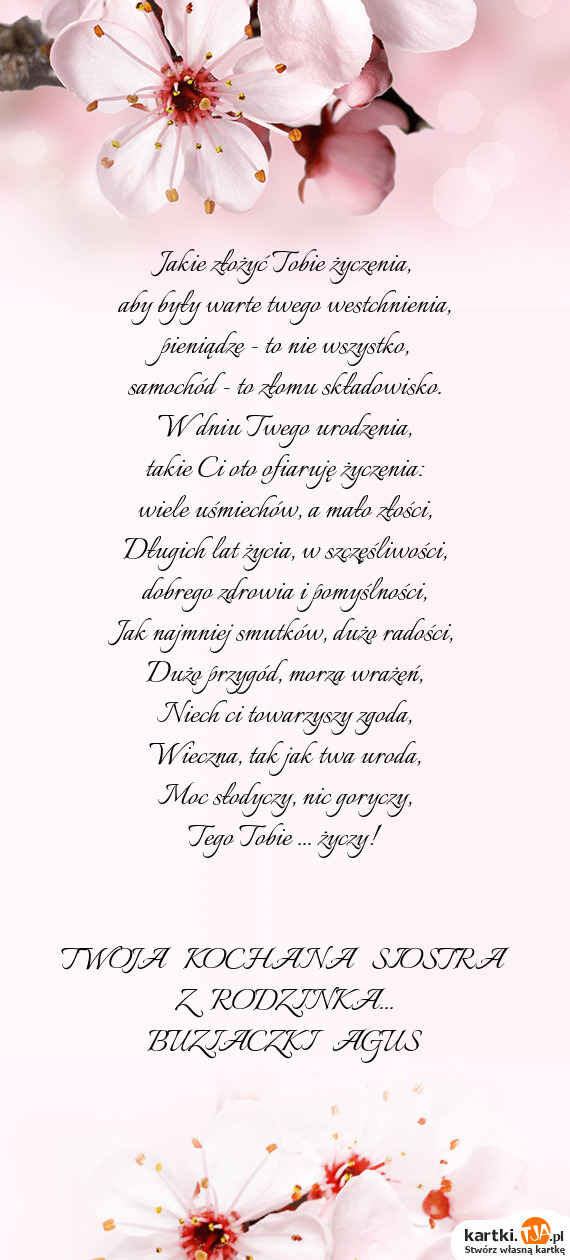 Jakie złożyć Tobie życzenia,
aby były warte twego westchnienia,
pieniądzę - to nie wszystko,
samochód - to złomu składowisko.
W dniu Twego urodzenia,
takie Ci oto ofiaruję życzenia:
wiele uśmiechów, a mało złości,
Długich lat życia, w szczęśliwości,
dobrego zdrowia i pomyślności,
Jak najmniej smutków, dużo radości,
Dużo przygód, morza wrażeń,
Niech ci towarzyszy zgoda,
Wieczna, tak jak twa uroda,
Moc słodyczy, nic goryczy,
Tego Tobie ... życzy!
TWOJA KOCHANA SIOSTRA
Z RODZINKA...
BUZIACZKI AGUS
kartki.TJA.pl
Stwórz własną kartkę